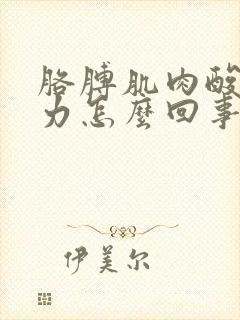 胳膊肌肉酸
力怎麼回事
伊美尔